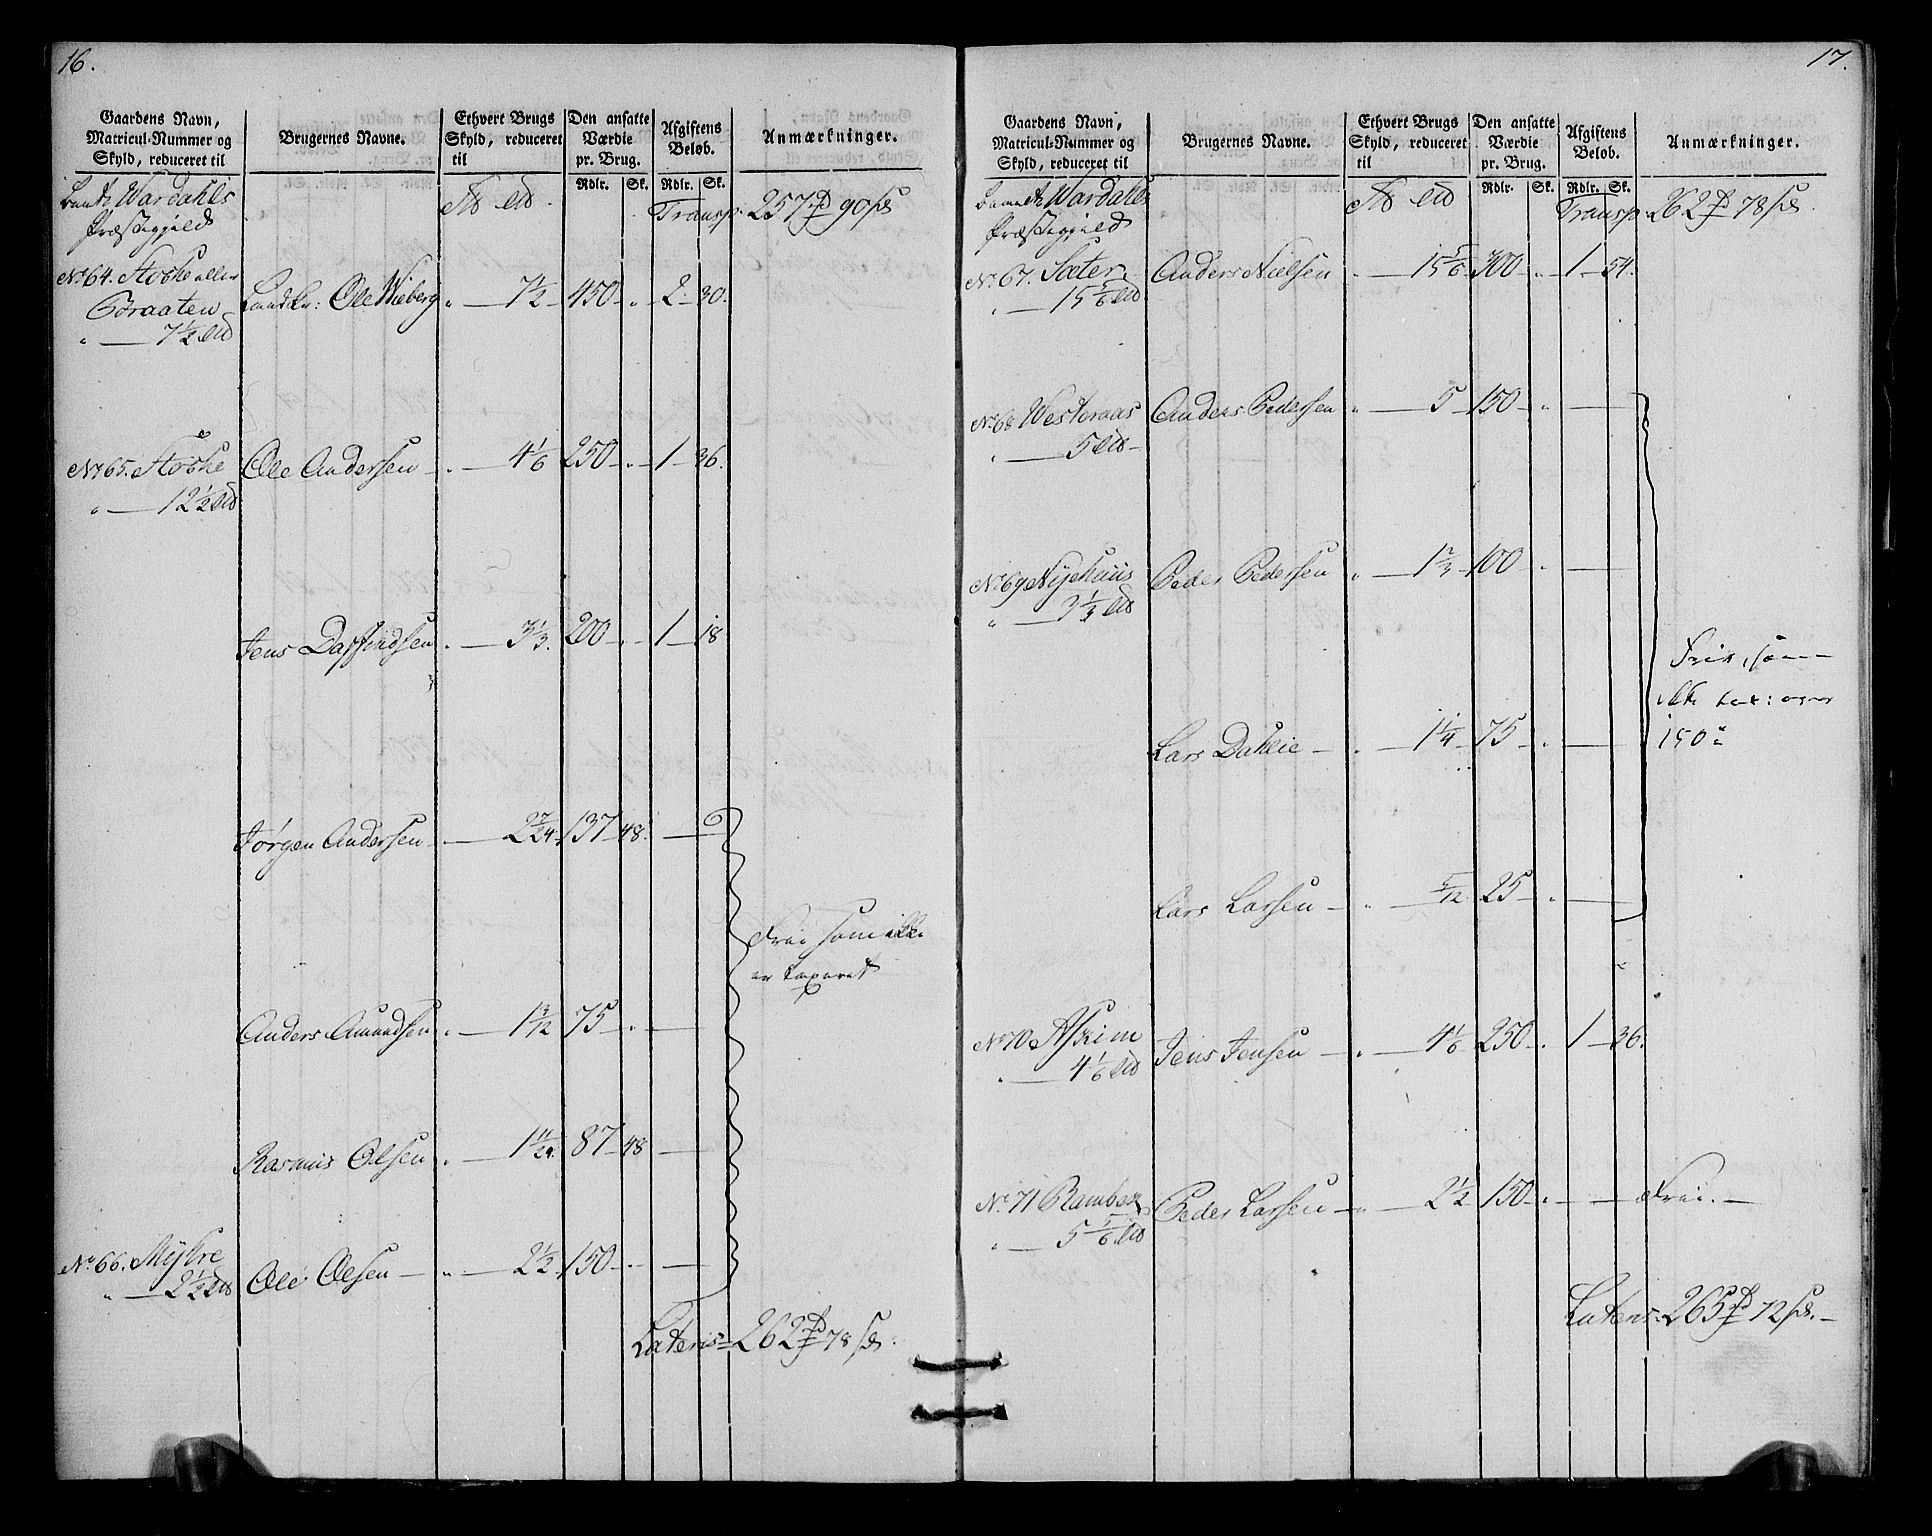 16.
Gaardens Navn,
Matricul-Nummer og
Skyld, reduceret til
Brugernes Navne.
Ethvert Brugs
Skyld, reduceret
til
Den ansatte
Værdie
pr. Brug.
Rdlr. Sk.
Afgiftens
Beløb.
Rdlr. Sk.
Anmærkninger.
Wardahls
Præstegjeld
Transp. 257 90 s
No 64. Stoche eller
Braaten
" — 7 1/2
Ole Wieberg " — 7 1/2 450 " 2 30.
No 65. Stoche
" — 12 1/2
Ole Andersen " — 4 1/6 250 " 1 36.
Jens Daffindsen " — 3 1/3 200 " 1 18
Jørgen Andersen — 2 7/24 137 48. — 6
Anders Amundsen " — 1 3/12 75 " —
Frie som ikke
er taxeret
Rasmus Olsen " — 1 11/24 87 48 —
No 66. Myhre
" — 2 1/2
Ole Olsen — " — 2 1/2 150 " —
Lateris 262 78 s
17.
Gaardens Navn,
Matricul-Nummer og
Skyld, reduceret til
Brugernes Navne.
Ethvert Brugs
Skyld, reduceret
til
Den ansatte
Værdie
pr. Brug.
Rdlr. Sk.
Afgiftens
Beløb.
Rdlr. Sk.
Anmærkninger.
Wardahls
Præstegjeld
Transp. 262 78 s
No 67. Sæter
" — 15 5/6
Anders Nielsen " — 15 5/6 300 " 1 54.
No 68 Westeraas
" — 5
Anders Pedersen " — 5 150 " —
No 69 Nyehuus
" — 3 1/3
Peder Pedersen " — 1 2/3 100 " —
Frie, som
ikke tax: over
150
Lars Dahlie — " — 1 1/4 75 " —
Lars Larsen — " — 5/12 25 " —
No 70 Askim
" — 4 1/6
Jens Jensen — " — 4 1/6 250 " 1 36.
No 71 Ramber
" — 5 5/6
Peder Larsen — " — 2 1/2 150 " — — Frie. —
Latens 265 72 s. —